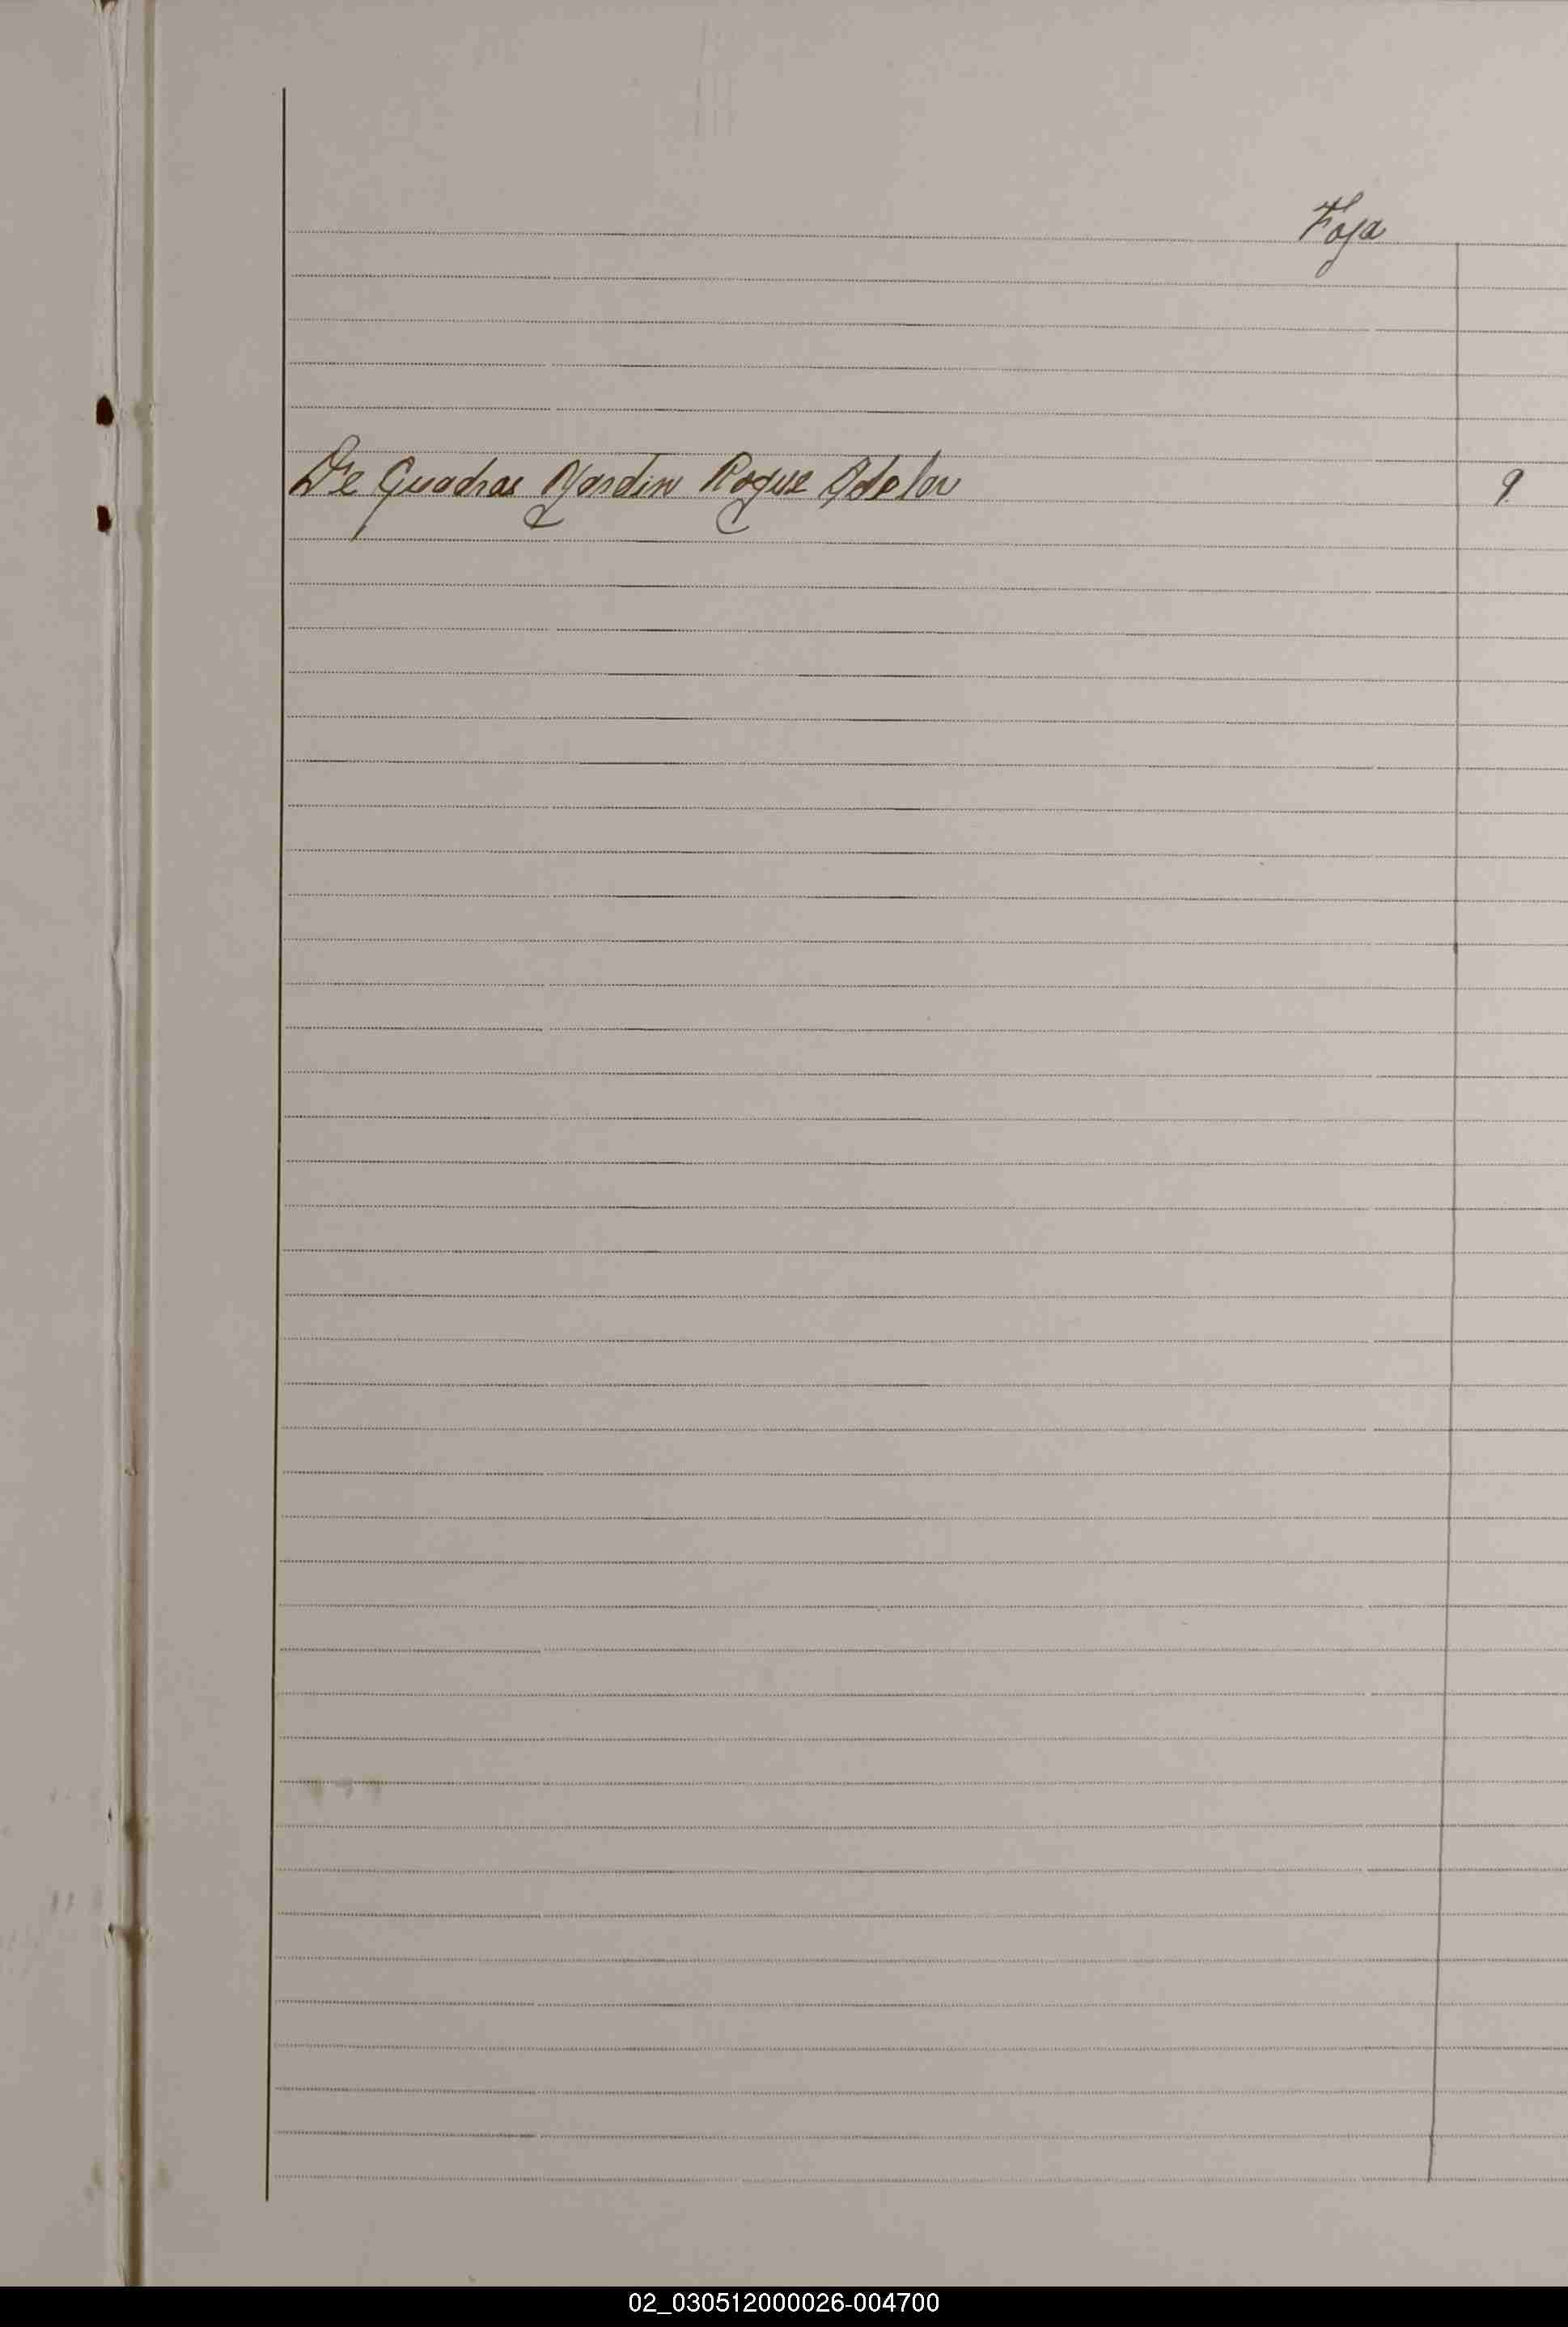 Foja
De Quadras Jardin Roque Adela 9
02_030512000026-004700